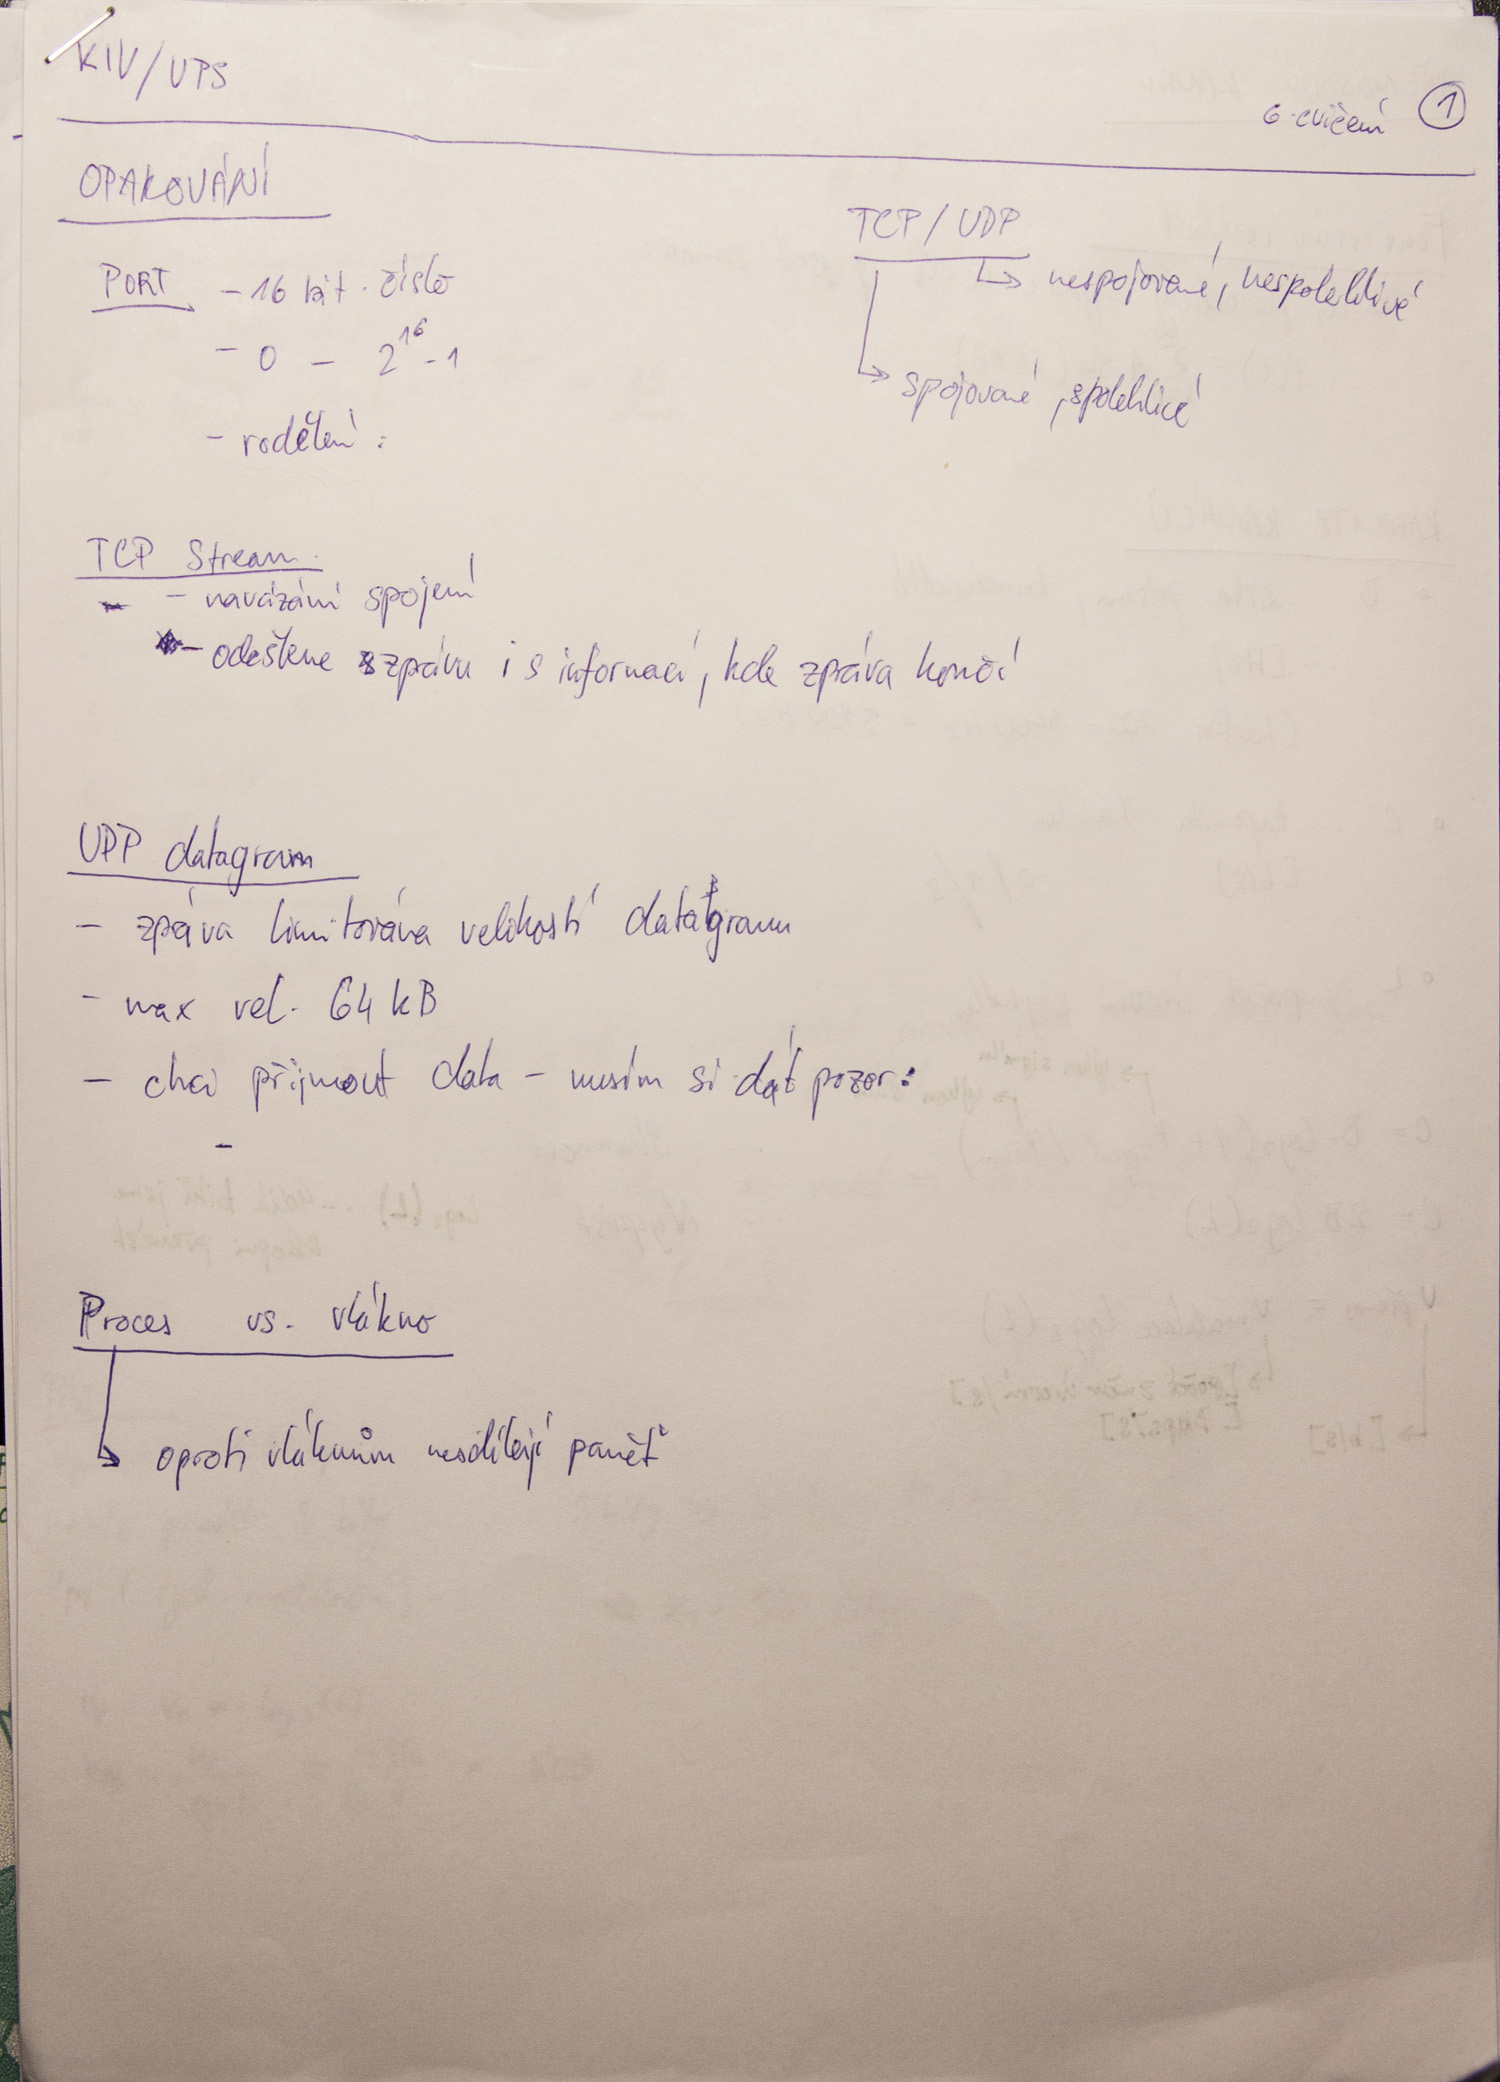 KIV/UPS
6. cvičení 1
OPAKOVÁNÍ
PORT - 16 bit. číslo
- 0 - 2^16 - 1
- rodělení :
TCP / UDP
↳ nespojované, nespolehlivé
↳ spojované, spolehlivé
TCP Stream
- navázání spojení
- odešleme zprávu i s informací, kde zpráva končí
UDP datagram
- zpráva limitována velikostí datagramu
- max vel. 64 kB
- chci přijmout data - musím si dát pozor:
-
Proces vs. vlákno
↳ oproti vláknům nesdílejí paměť